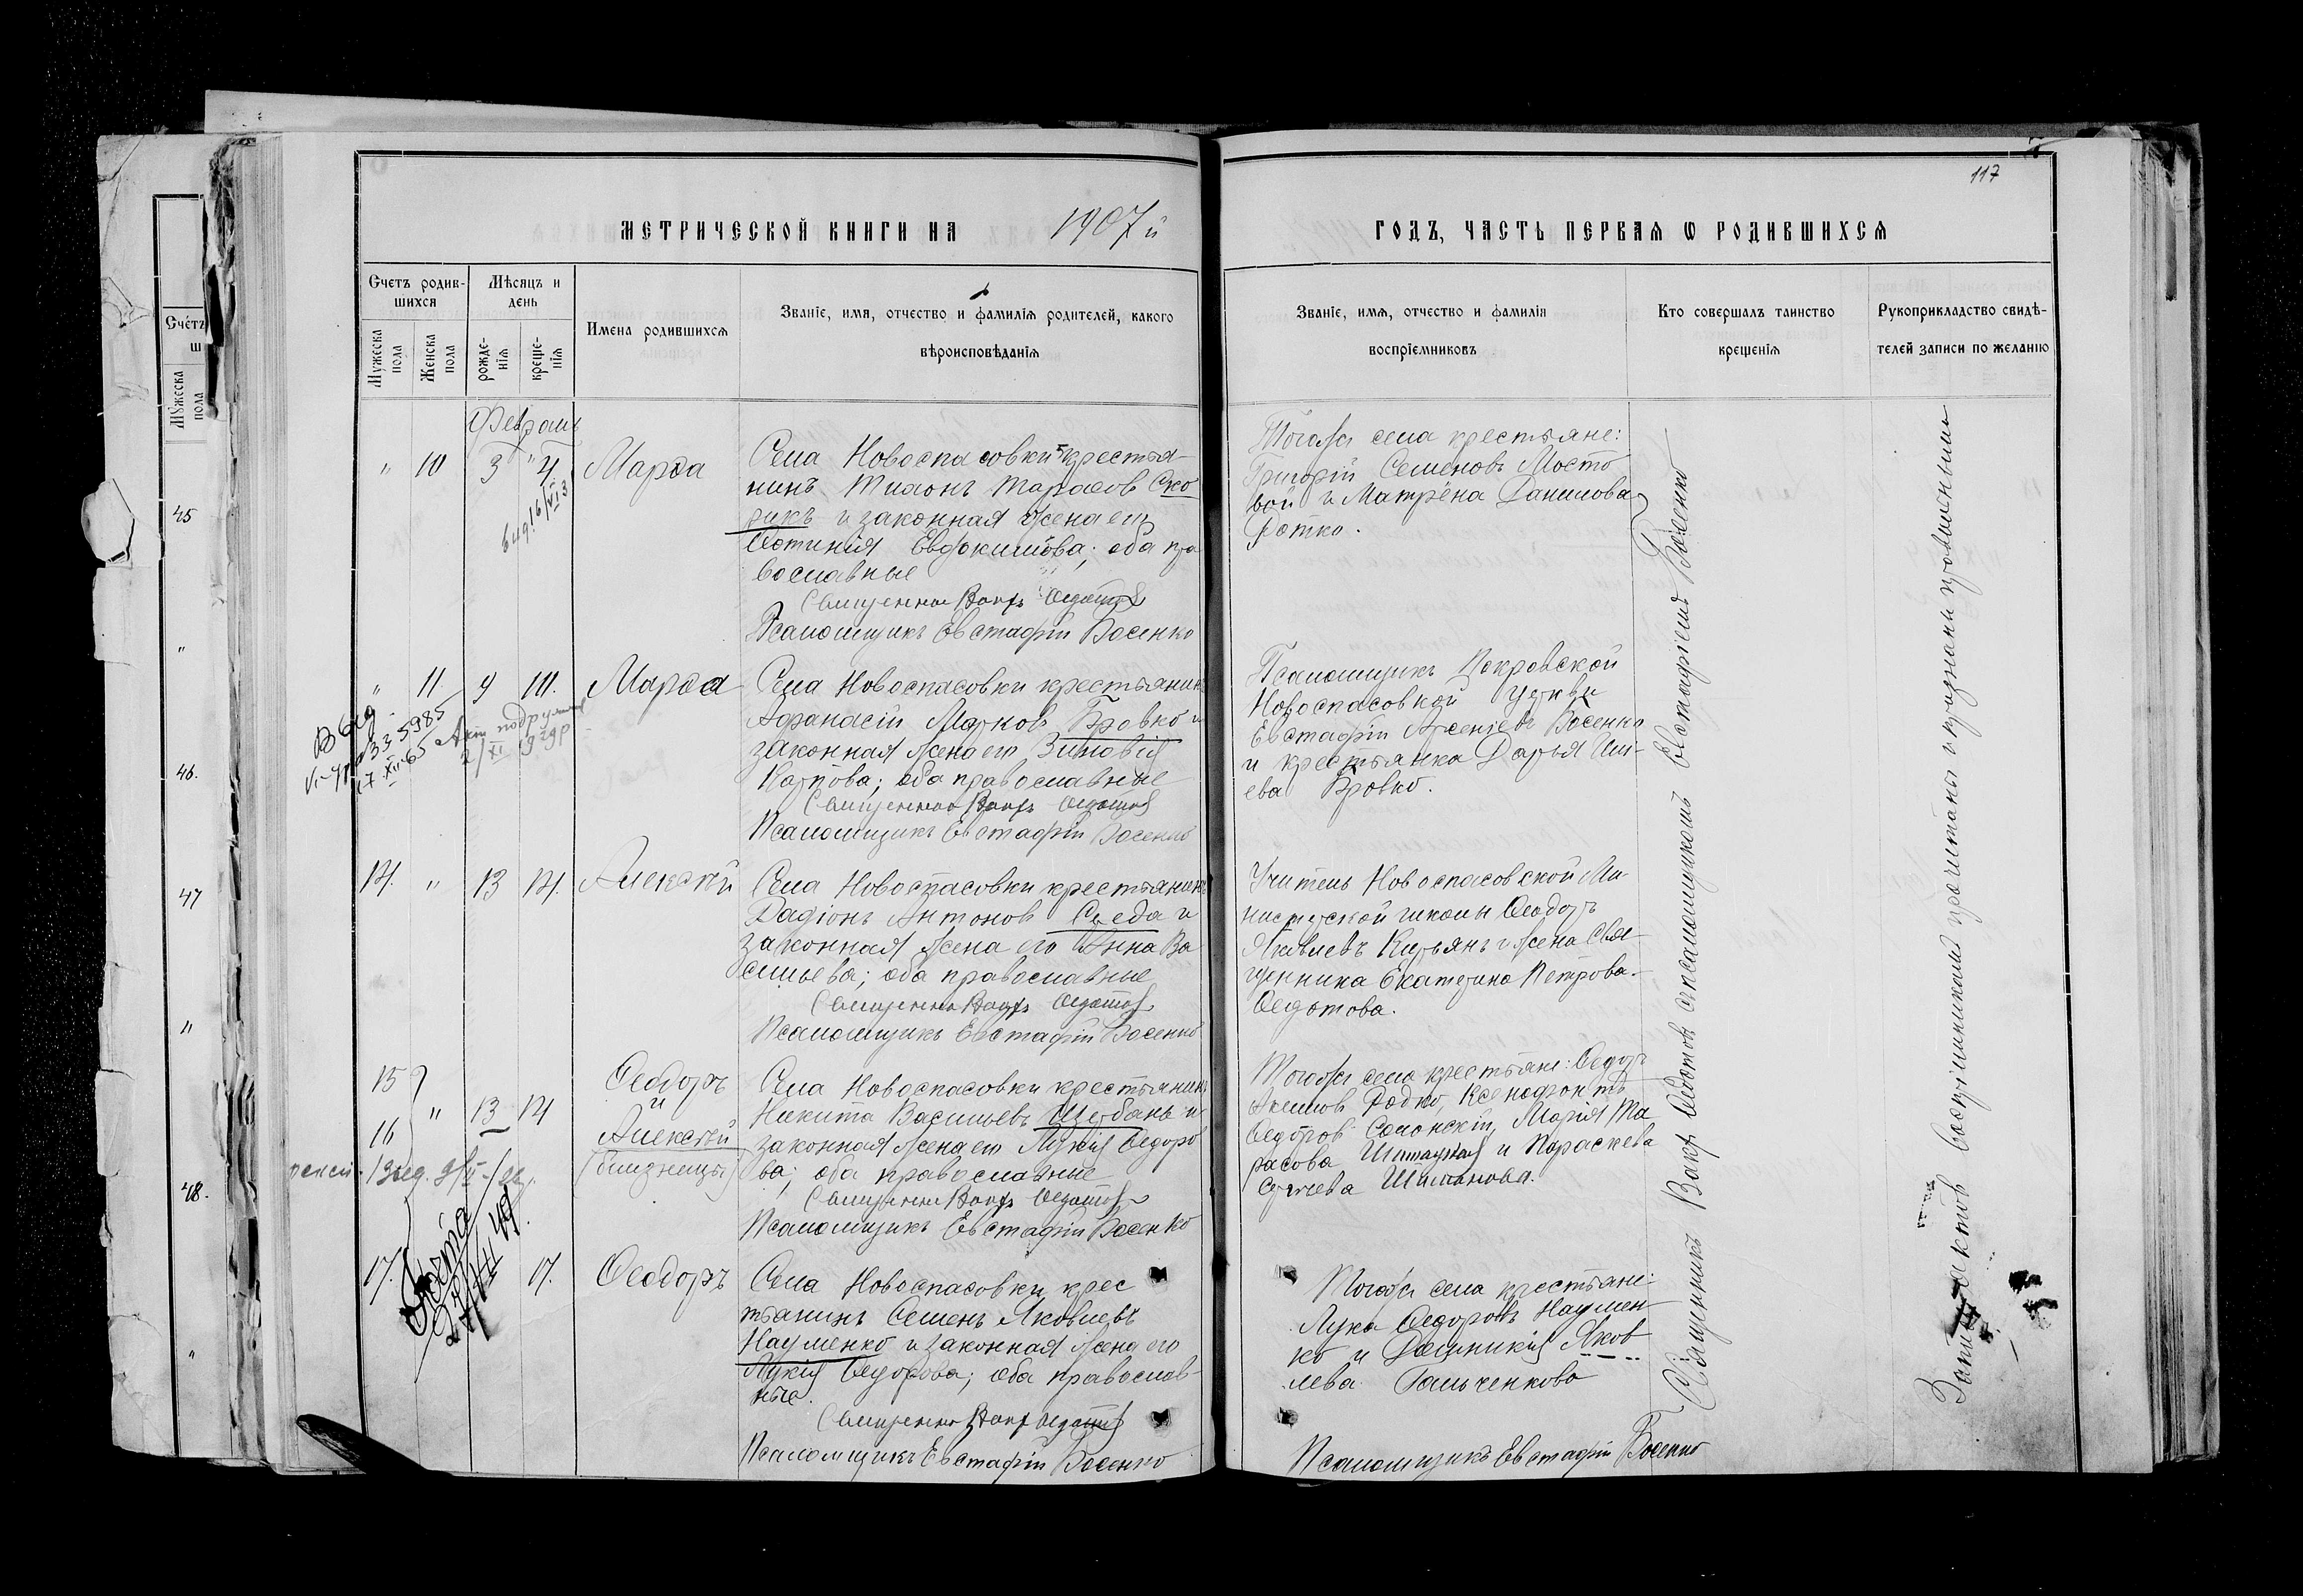 117
МЕТРИЧЕСКОЙ КНИГИ НА 1907й
ГОДЪ, ЧАСТЬ ПЕРВАЯ Ѡ РОДИВШИХСЯ
Счетъ родив-
шихся
Мужеска
пола
Женска
пола
Мѣсяцъ и
день
рожде-
нія
креще-
нія
Имена родившихся
Званіе, имя, отчество и фамилія родителей, какого
вѣроисповѣданія
Званіе, имя, отчество и фамилія
воспріемниковъ
Кто совершалъ таинство
крещенія
Рукоприкладство свидѣ-
телей записи по желанію
Счетъ
ш
Мужеска
пола
45
"
46.
47
"
48.
"
Февраль
" 10 3 4 Марѳа
Села Новоспасовки крестья-
нинъ Тихонъ Тарасов Ско
рикъ и законная жена его
Ѳотинія Евдокимова; оба пра
вославные
Священник Вакх Ѳедотов
Псаломщикъ Евстафій Босенко
Тогожъ села крестьяне:
Григорій Семеновъ Мосто
вой и Матрёна Данилова
Фотко.
" 11. 9 10. Марѳа
Села Новоспасовки крестьянинъ
Афанасій Марков Бровко и
законная жена его Зиновія
Карпова; оба православные
Священник Вакх Ѳедотов
Псаломщикъ Евстафій Босенко
Псаломщикъ Покровской
Новоспасовкой церкви
Евстафій Арсеніевъ Босенко
и крестьянка Дарья Иль-
ева Бровко.
14. " 13 14. Алексѣй
Села Новоспасовки крестьянинъ
Радіонъ Антонов Среда и
законная жена его Анна Ва
сильева; оба православные
Священник Вакх Ѳедотов
Псаломщикъ Евстафій Босенко
Учитель Новоспасовской Ми-
нистерской школы Ѳеодоръ
Яковлевъ Кирьянъ и жена Свя-
щенника Екатерина Петрова
Ѳедотова.
15
16 " 13 14
Ѳеодоръ
и
Алексѣй
(близнецы)
Села Новоспасовки крестьянинъ
Никита Васильевъ Щербань и
законная жена его Лукія Ѳедоро
ва; оба православные
Священник Вакх Ѳедотов
Псаломщикъ Евстафій Босенко
Тогожъ села крестьяне: Ѳедоръ
Акимов Родко, Ксенофонтъ
Ѳедоров Солонскій, Марія Та
расова и Параскева
Сергеева Шиманова.
17. 17. Ѳеодоръ
Села Новоспасовки крес
тьянинъ Семенъ Яковлевъ
Науменко и законная жена его
Лукія Ѳедорова; оба православ-
ные.
Священник Вакх Ѳедотов
Псаломщикъ Евстафій Босенко
Тогожъ села крестьяне:
Лука Ѳедоровъ Наумен-
ко и Домникія Яков
лева Гальченкова
Псаломщикъ Евстафій Босенко
Священникъ Вакх Ѳедотов с псаломщикомъ Евстафіемъ Босенко